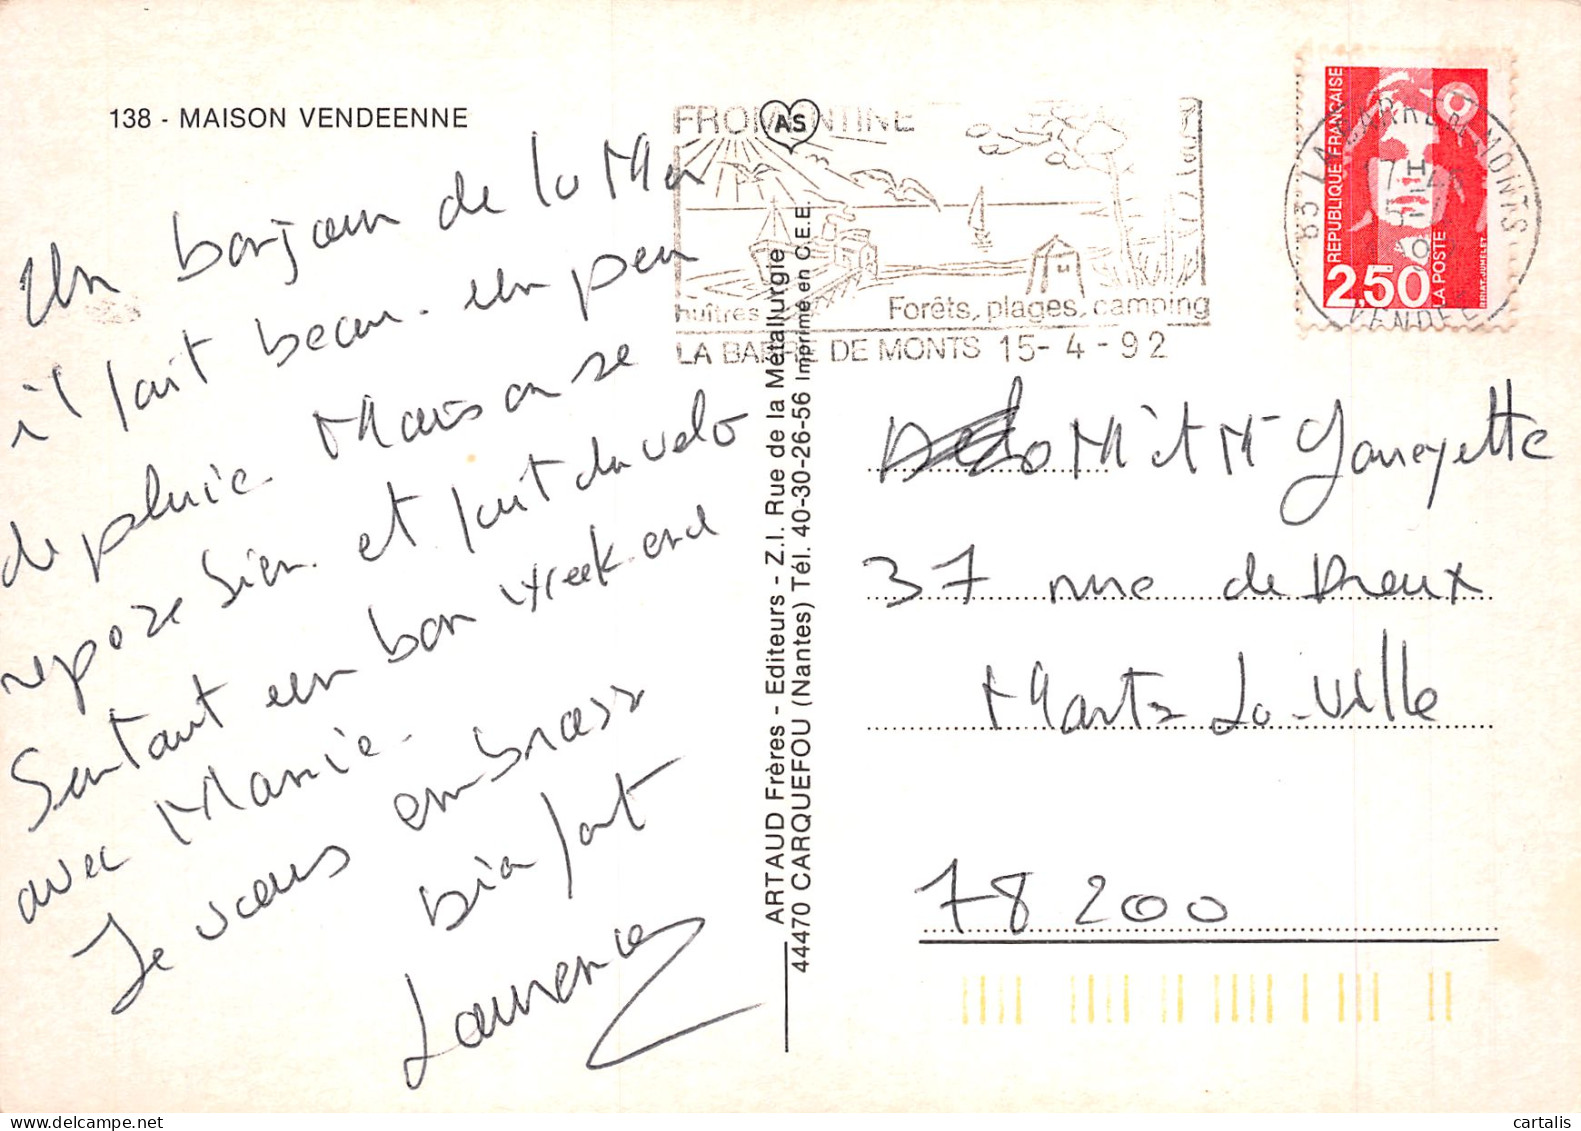 138 - MAISON VENDEENNE
Un bonjour de la Mer
il fait beau. un peu
de pluie Mais on se
repose bien et fait du velo
Sentant un bon week end
avec Marcie.
Je vous embrass
bien fort
Laurence
ARTAUD Frères - Editeurs - Z.I. Rue de la Métallurgie
44470 CARQUEFOU (Nantes) Tél. 40-30-26-56 Imprimé en C.E.E.
AS
FROMENTINE
huîtres
Forêts, plages, camping
LA BARRE DE MONTS 15-4-92
REPUBLIQUE FRANÇAISE
2,50
LA POSTE
BRIAT. JUMELET
LA BARRE DE MONTS
17H
VENDEE
M et M
37 rue de Dreux
Mantes La-Ville
78 200
cartalis